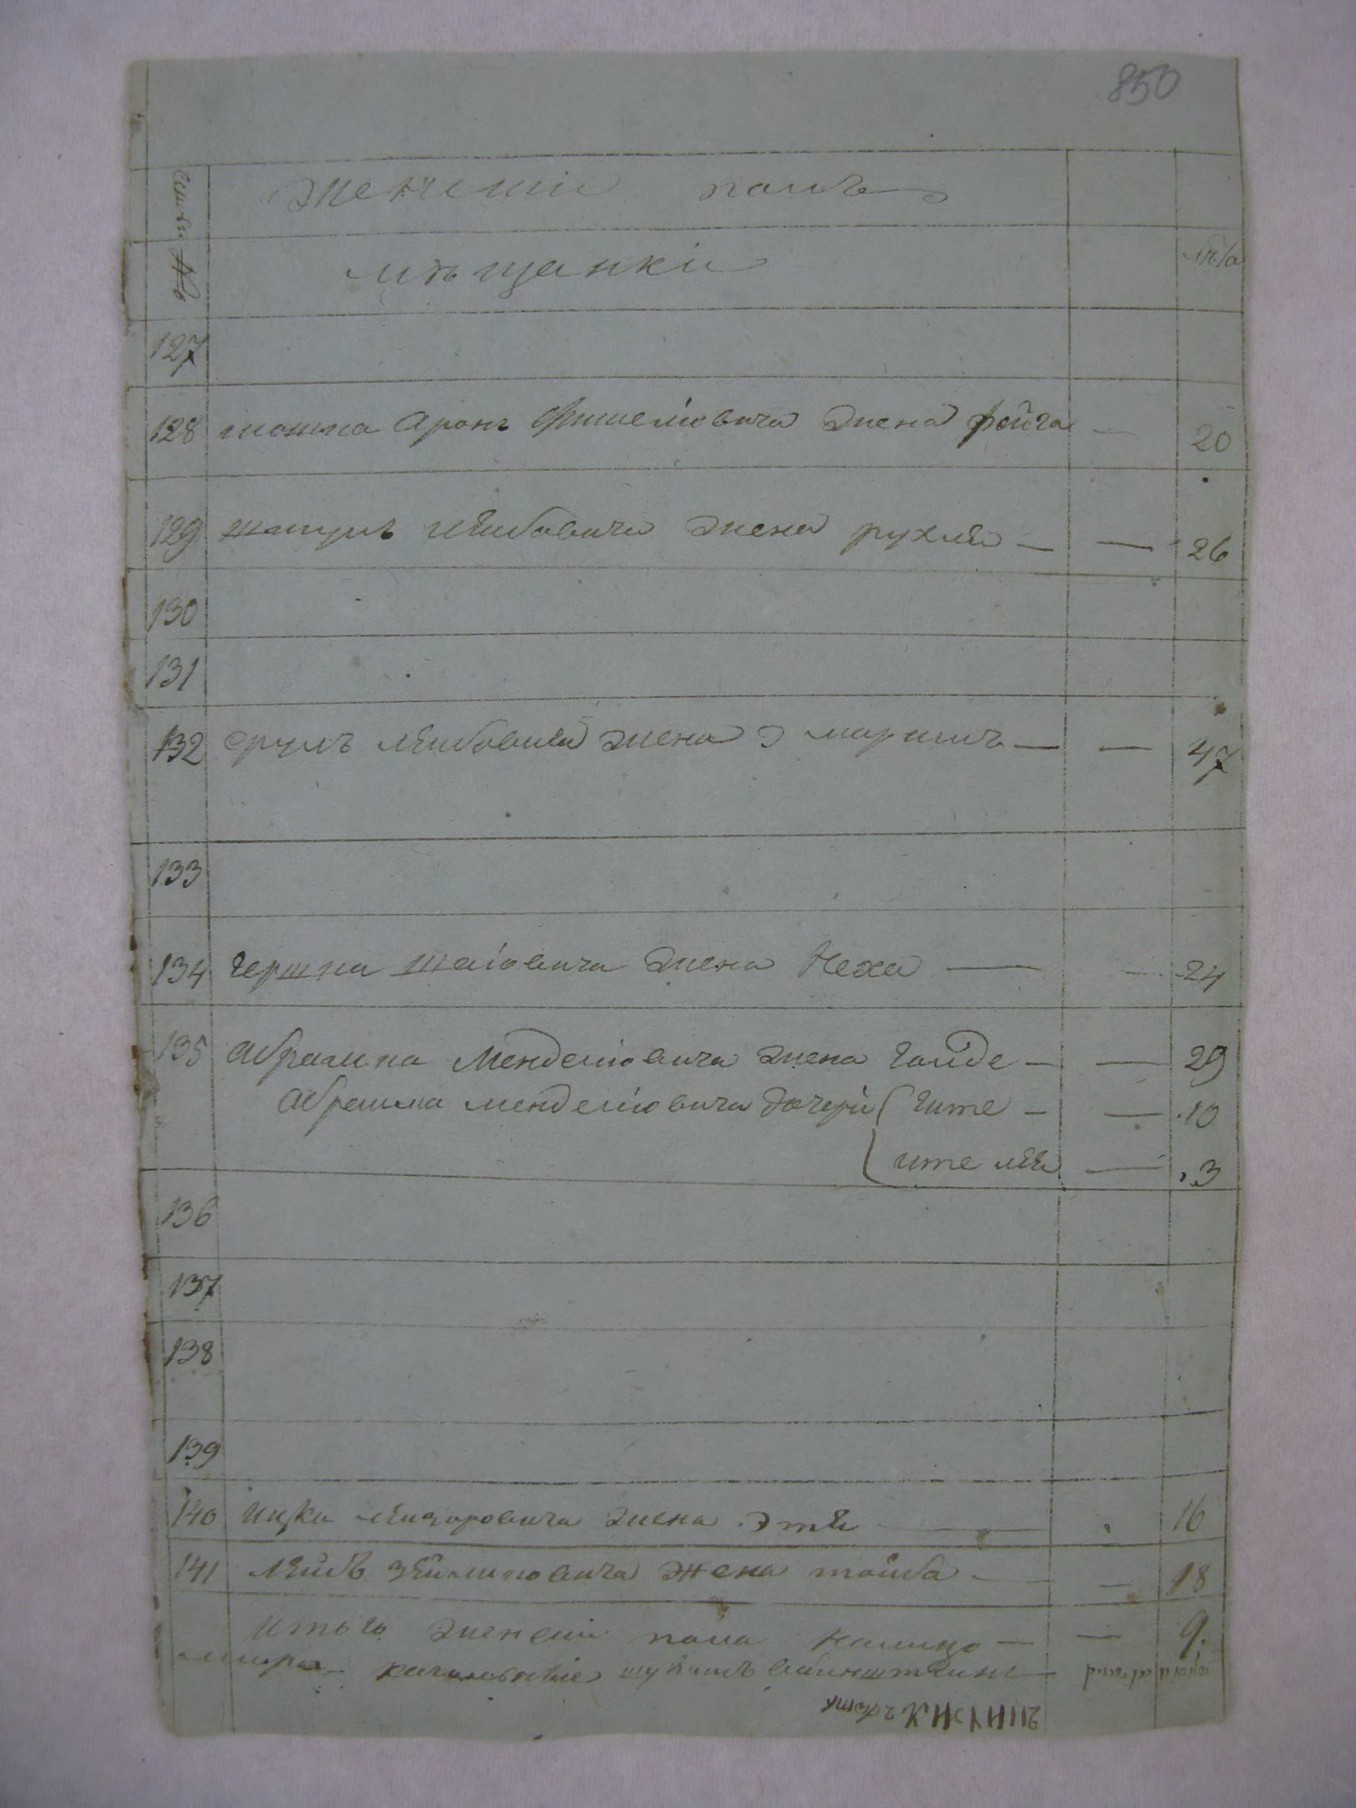 850
женскій полъ
мѣщанки
лѣта
127
128 мошка Аронъ Фишеліовича жена фойга — 20
129 жена рухля — — 26
130
131
132 срулъ лейбовича жена — — 47
133
134 гершка шаіовича жена Неха — — 24
135 Абрамка Менделіовича жена гольде — — 29
Абрамка менделіовича дочери гите — — 10
ите лея — 3
136
137
138
139
140 ицка лейзоровича жена этя — 16
141 лейбъ зейликовича жена тойба — — 18
Итого женскій пола налицо — — 9.